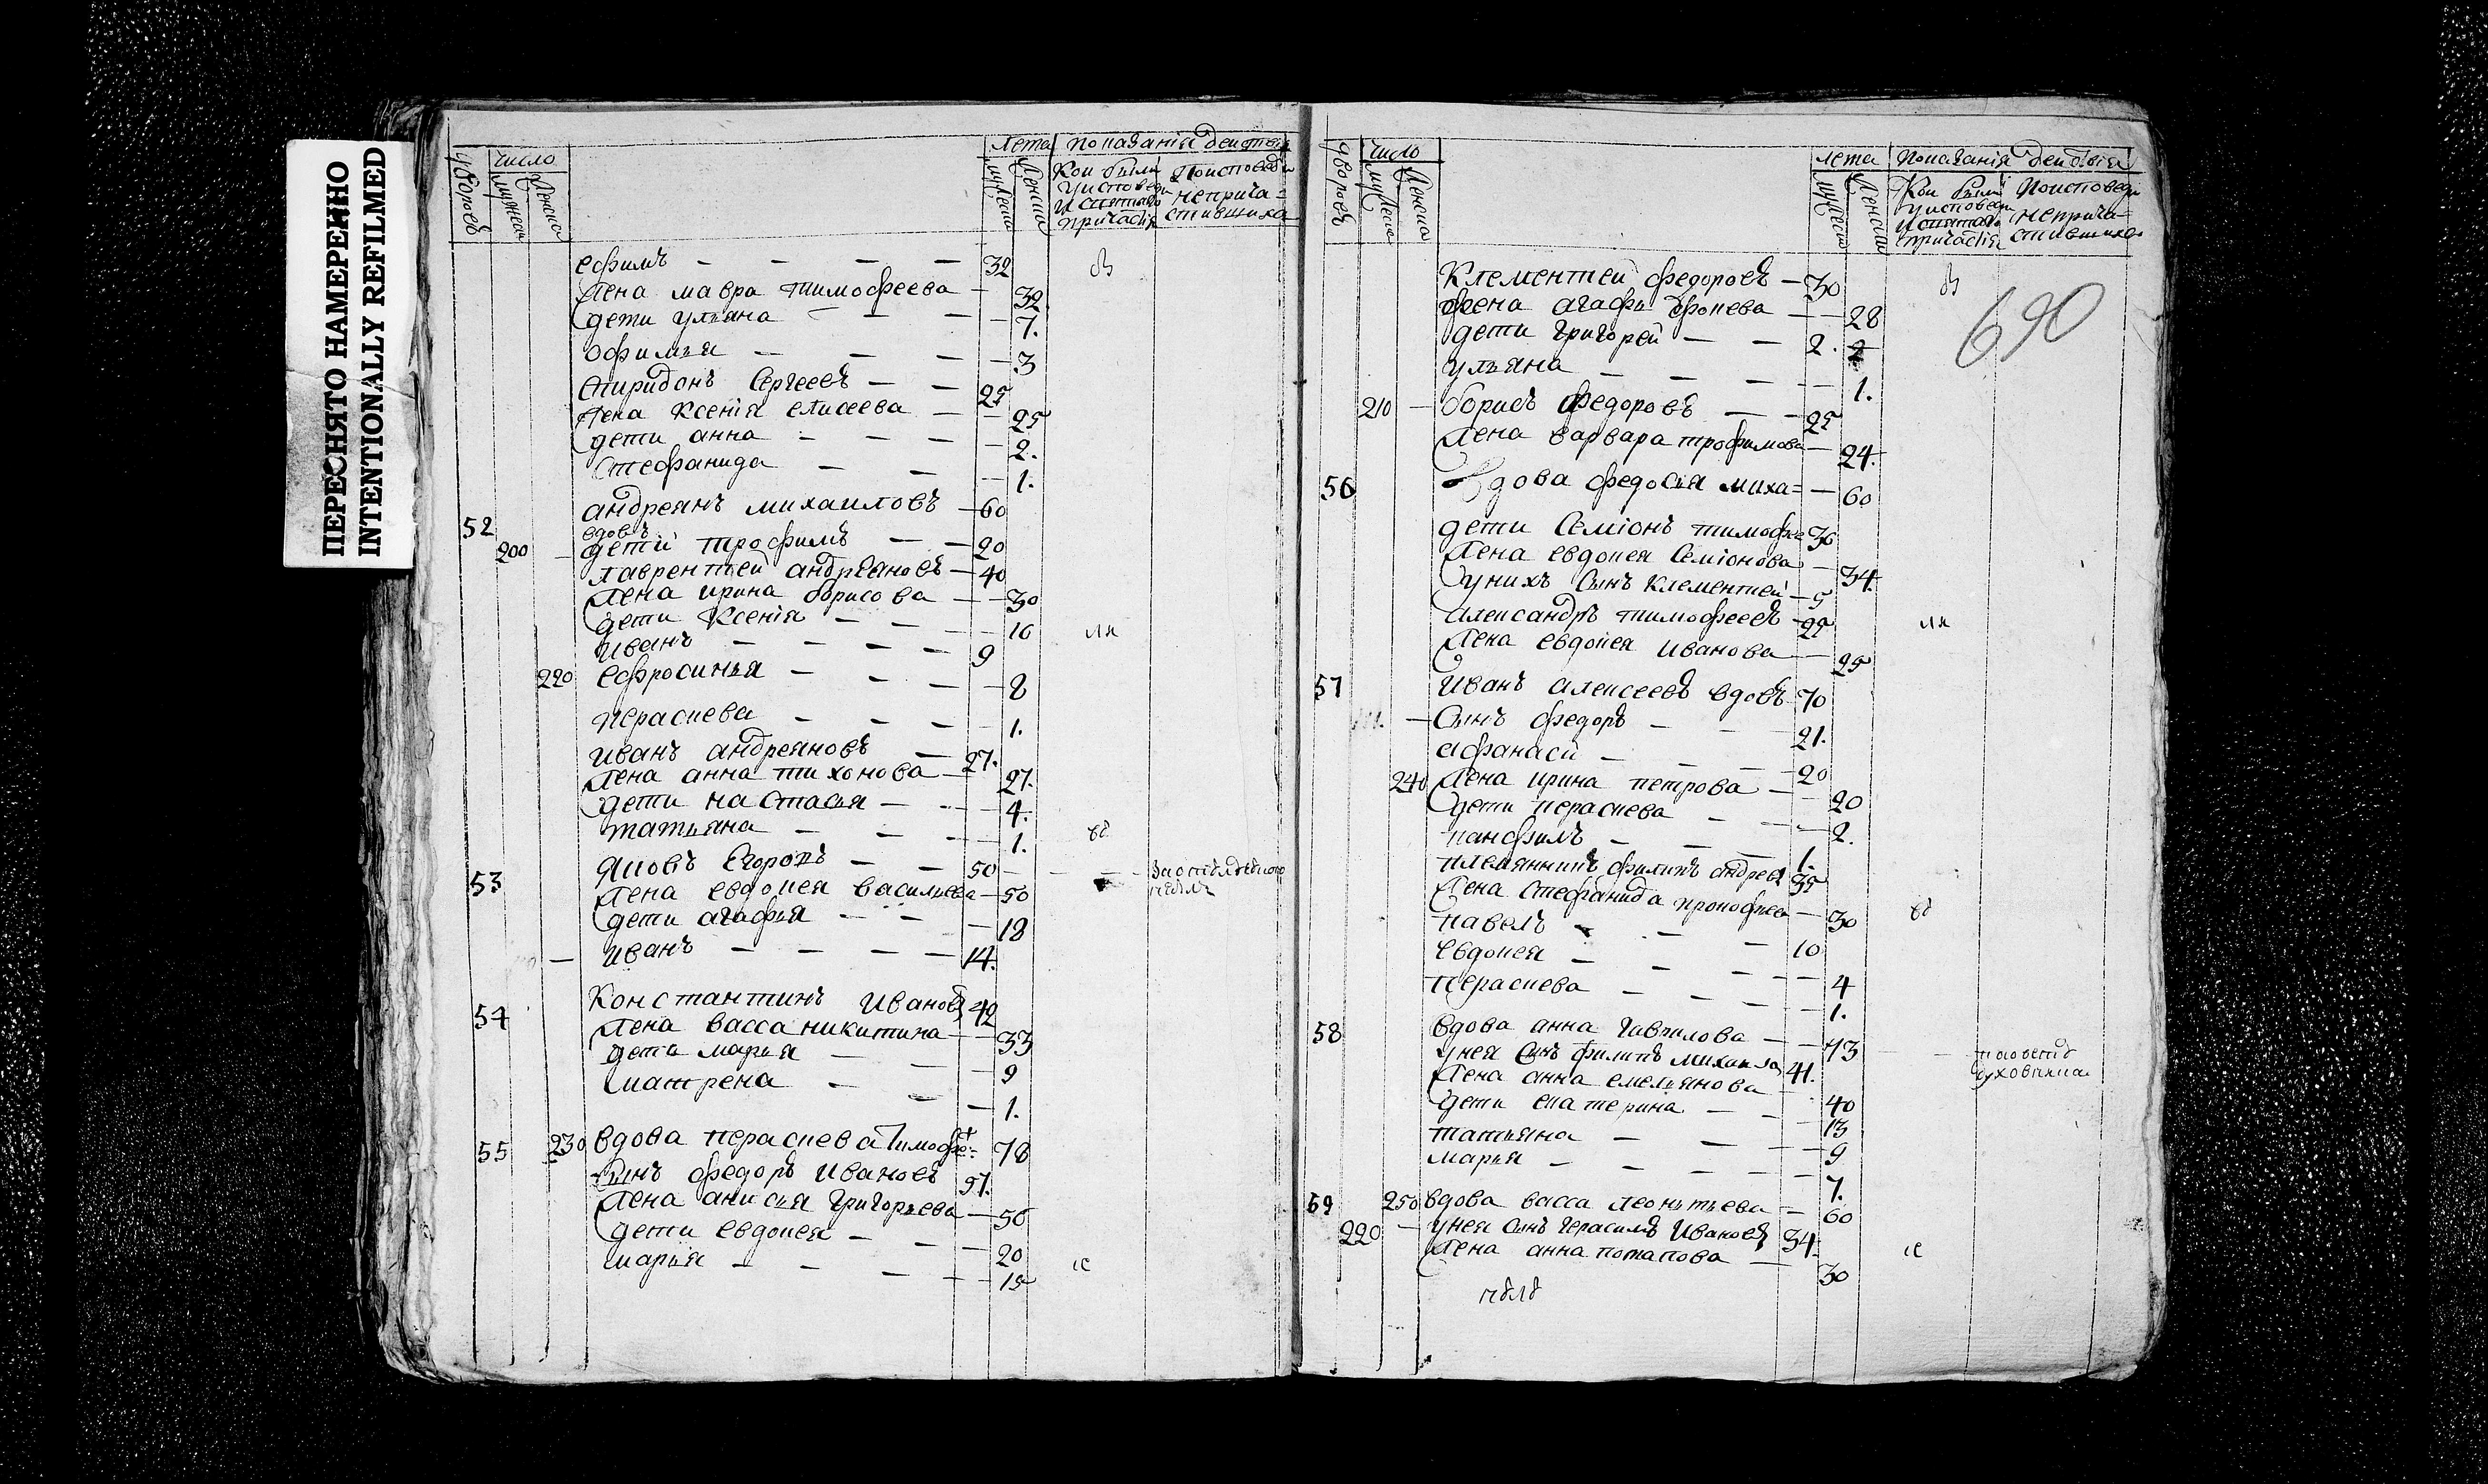 ПЕРЕСНЯТО НАМЕРЕННО
INTENTIONALLY REFILMED
число
лета показания действъ
дворовъ
мужеска
женска
мужеска
женска
Кои были у исповеди и святаго причастiя
По исповеди непричастившихся
ефимъ — — — — 32 въ
жена мавра тимофеева — 32
дети ульяна — — — 7.
офимья — — — — 3
спиридонъ Сергеевъ — — 25
жена Ксенiя елисеева — — 25
дети анна — — — — 2.
стефанида — — — 1.
52 андреянъ михаиловъ — 60
вдовъ
200 — дети трофимъ — — 20
лаврентей андреяновъ — 40
жена ирина борисова — — 30
дети Ксенiя — — — — 10
иванъ — — — — 9
220 ефросинья — — — — 8
пераскева — — — — 1.
иванъ андреяновъ — 27.
жена анна тихонова — 27.
дети настасья — — — 4.
татьяна — — — — 1.
53 яковъ Егоровъ — — 50 — — —
жена евдокея васильева — 50
дети агафья — — — 18
иванъ — — — — 14.
54 Константинъ Ивановъ 42
жена васса никитина — 33
дети марья — — — 9
матрена — — — 1.
55 230 вдова пераскева Тимофе= 78
сынъ федоръ Ивановъ 57.
жена анисья григорьева — 56
дети евдокея — — — 20
марья — — — — 15
число
лета показанiя действiя
дворовъ
мужеска
женска
мужеска
женска
Кои были у исповеди и святаго причастiя
По исповеди непричастившихся
690
Клементей федоровъ — 30 въ
жена агафья — — 28
дети григорей — — 2.
ульяна — — — — 1.
210 — борисъ федоровъ — — 25
жена варвара трофимова — 24.
56 вдова федосья миха= — 60
дети Семiонъ тимофее 36
жена евдокея Семiонова — 34.
у нихъ сынъ Клементей — 5
александръ тимофеевъ — 25
жена евдокея иванова — 25
57 иванъ алексеевъ вдовъ 70
— Сынъ федоръ — — — 21.
афанасй — — — 20
240 жена ирина петрова — — 20
дети пераскева — — — 2.
панфилъ — — — 1.
племянникъ филипъ андреевъ 35
жена стефанида прокофьева — 30
павелъ — — — 10
евдокея — — — — 4
пераскева — — — — 1.
58 вдова анна гаврилова — — 73
у нея сынъ филипъ михаила 41.
жена анна емельянова — 40
дети екатерина — — 13
татьяна — — — 9
марья — — — — 7.
59 250 вдова васса леонтьева — 60
220 — у нея сынъ герасимъ Ивановъ 34.
жена анна потапова — 30